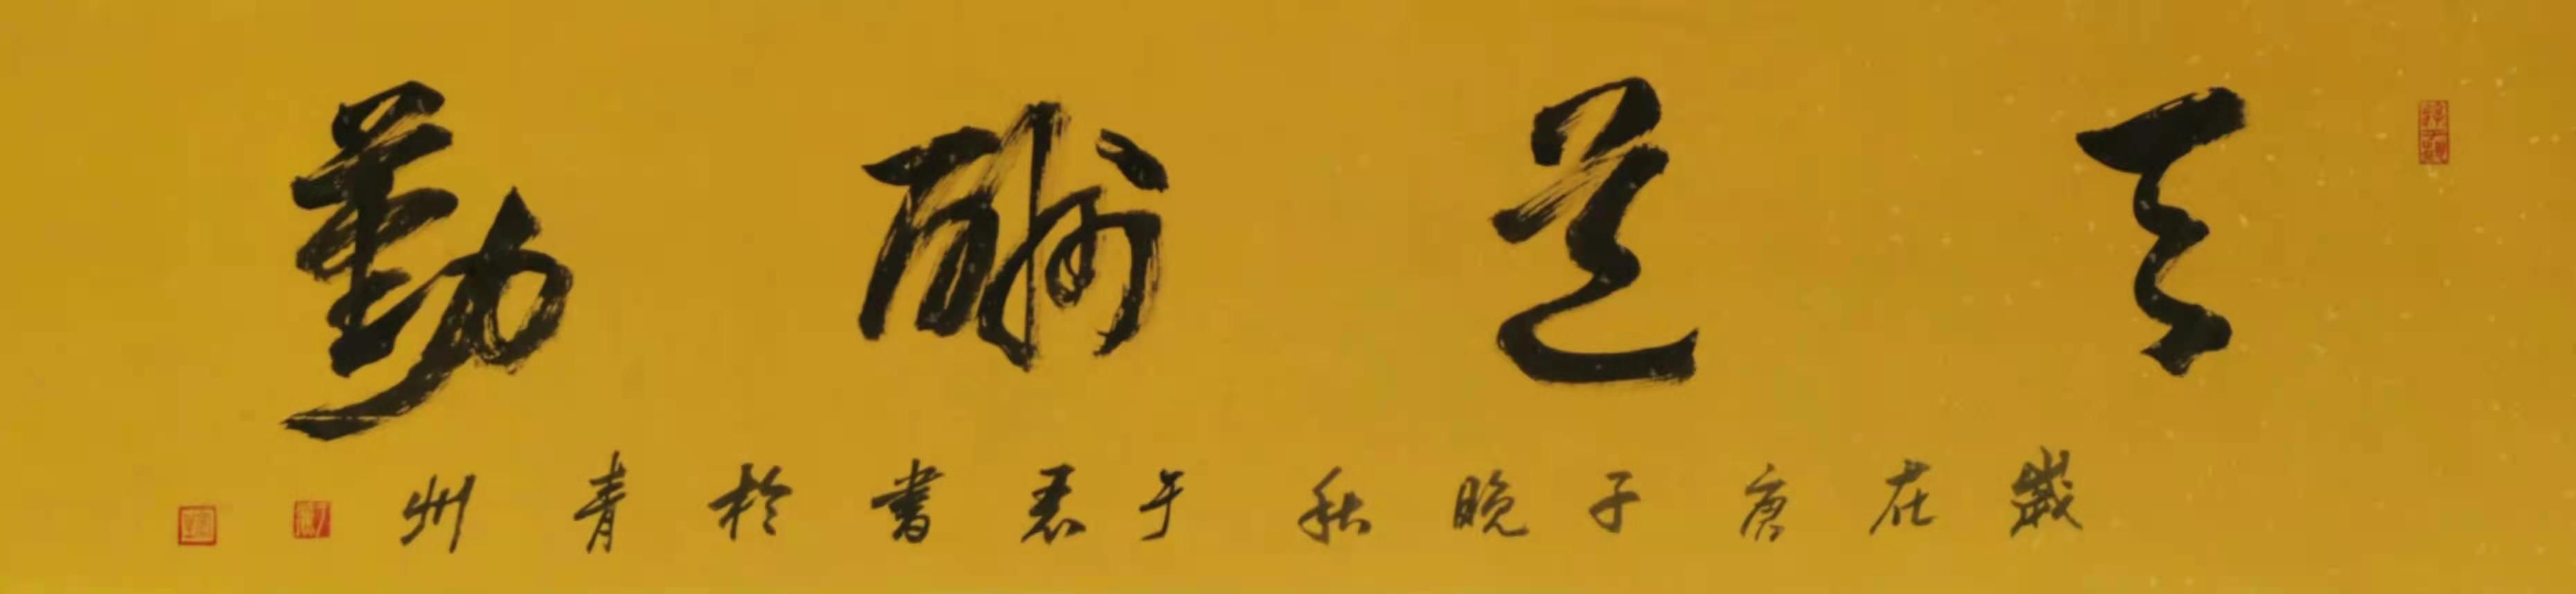 天道酬勤
歲在庚子晚秋于君書於青州